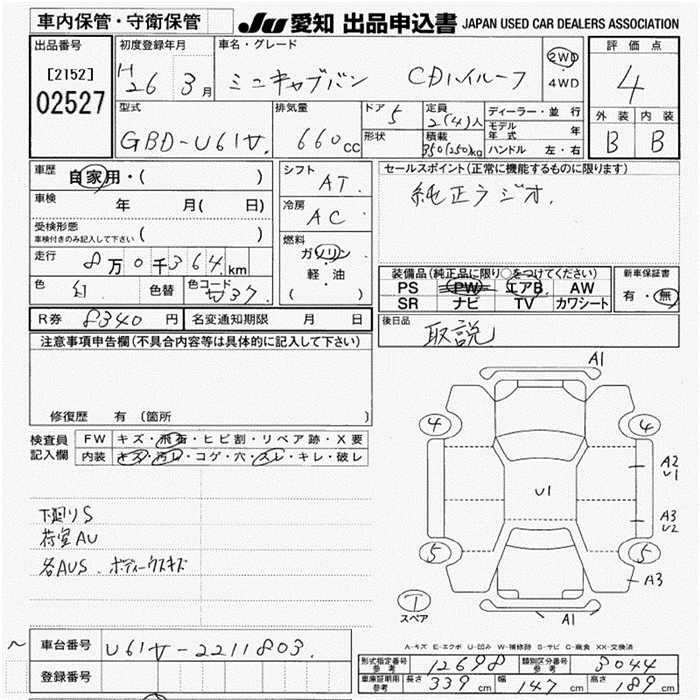 車内保管・守衛保管
JU 愛知 出品申込書 JAPAN USED CAR DEALERS ASSOCIATION
出品番号
[2152]
02527
初度登録年月
H26 3月
車名・グレード
ミニキャブバン CDハイルーフ
2WD
4WD
評価点
4
外装 内装
B B
型式
GBD-U61V.
排気量
660cc
ドア 5
形状
定員 2(4)人
積載 350(250)kg
ディーラー・並行
モデル年式 年
ハンドル 左・右
車歴
自家用・( )
車検 年 月( 日)
受検形態
車検付きのみ記入して下さい ( )
走行 8万0千364km
色 色替 色コード
シフト AT.
冷房 AC
燃料
ガソリン
軽・油
( )
セールスポイント(正常に機能するものに限ります)
純正ラジオ.
装備品(純正品に限り○をつけてください)
PS PW エアB AW
SR ナビ TV カワシート
新車保証書
有・無
R券 8340 円 名変通知期限 月 日
後日品 取説
注意事項申告欄(不具合内容等は具体的に記入して下さい)
修復歴 有(箇所 )
検査員記入欄
FW キズ・飛石・ヒビ割・リペア跡・X要
内装 キズ・汚レ・コゲ・穴・スレ・キレ・破レ
下廻りS
荷室AU
各AUS.ボディーウスキズ
A1
4 4
A2
U1
U1
A3
U2
5 5
A3
T
スペア
A1
A-キズ E-エクボ U-凹み W-補修跡 S-サビ C-腐食 XX-交換済
車台番号 U61V-2211803.
登録番号
形式指定番号参考 12698 類別区分番号参考 3044
車庫証明用参考 長さ 339cm 幅 147cm 高さ 189cm